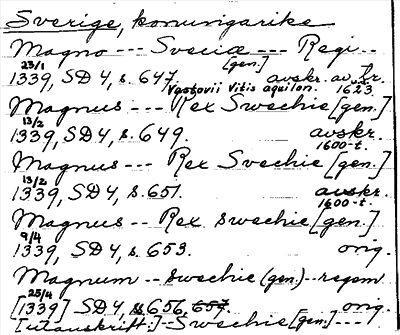 Sverige, konungarike
Magno --- Sveciæ --- Regi --
23/1 [gen.]
1339, SD 4, s. 647. avskr. av tr.
Vastovii Vitis aquilon. 1623.
Magnus -- Rex Swechie [gen.]
13/2
1339, SD 4, s. 649. avskr.
1600-t.
Magnus --- Rex Svechie [gen.]
13/2
1339, SD 4, s. 651. avskr.
1600-t.
Magnus -- Rex swechie [gen.]
9/4
1339, SD 4, s. 653. orig.
Magnum -- swechie (gen.) -- regem
25/4
[1339] SD 4, s. 656, 657. orig.
[utanskrift:] -- Swechie [gen.] ---